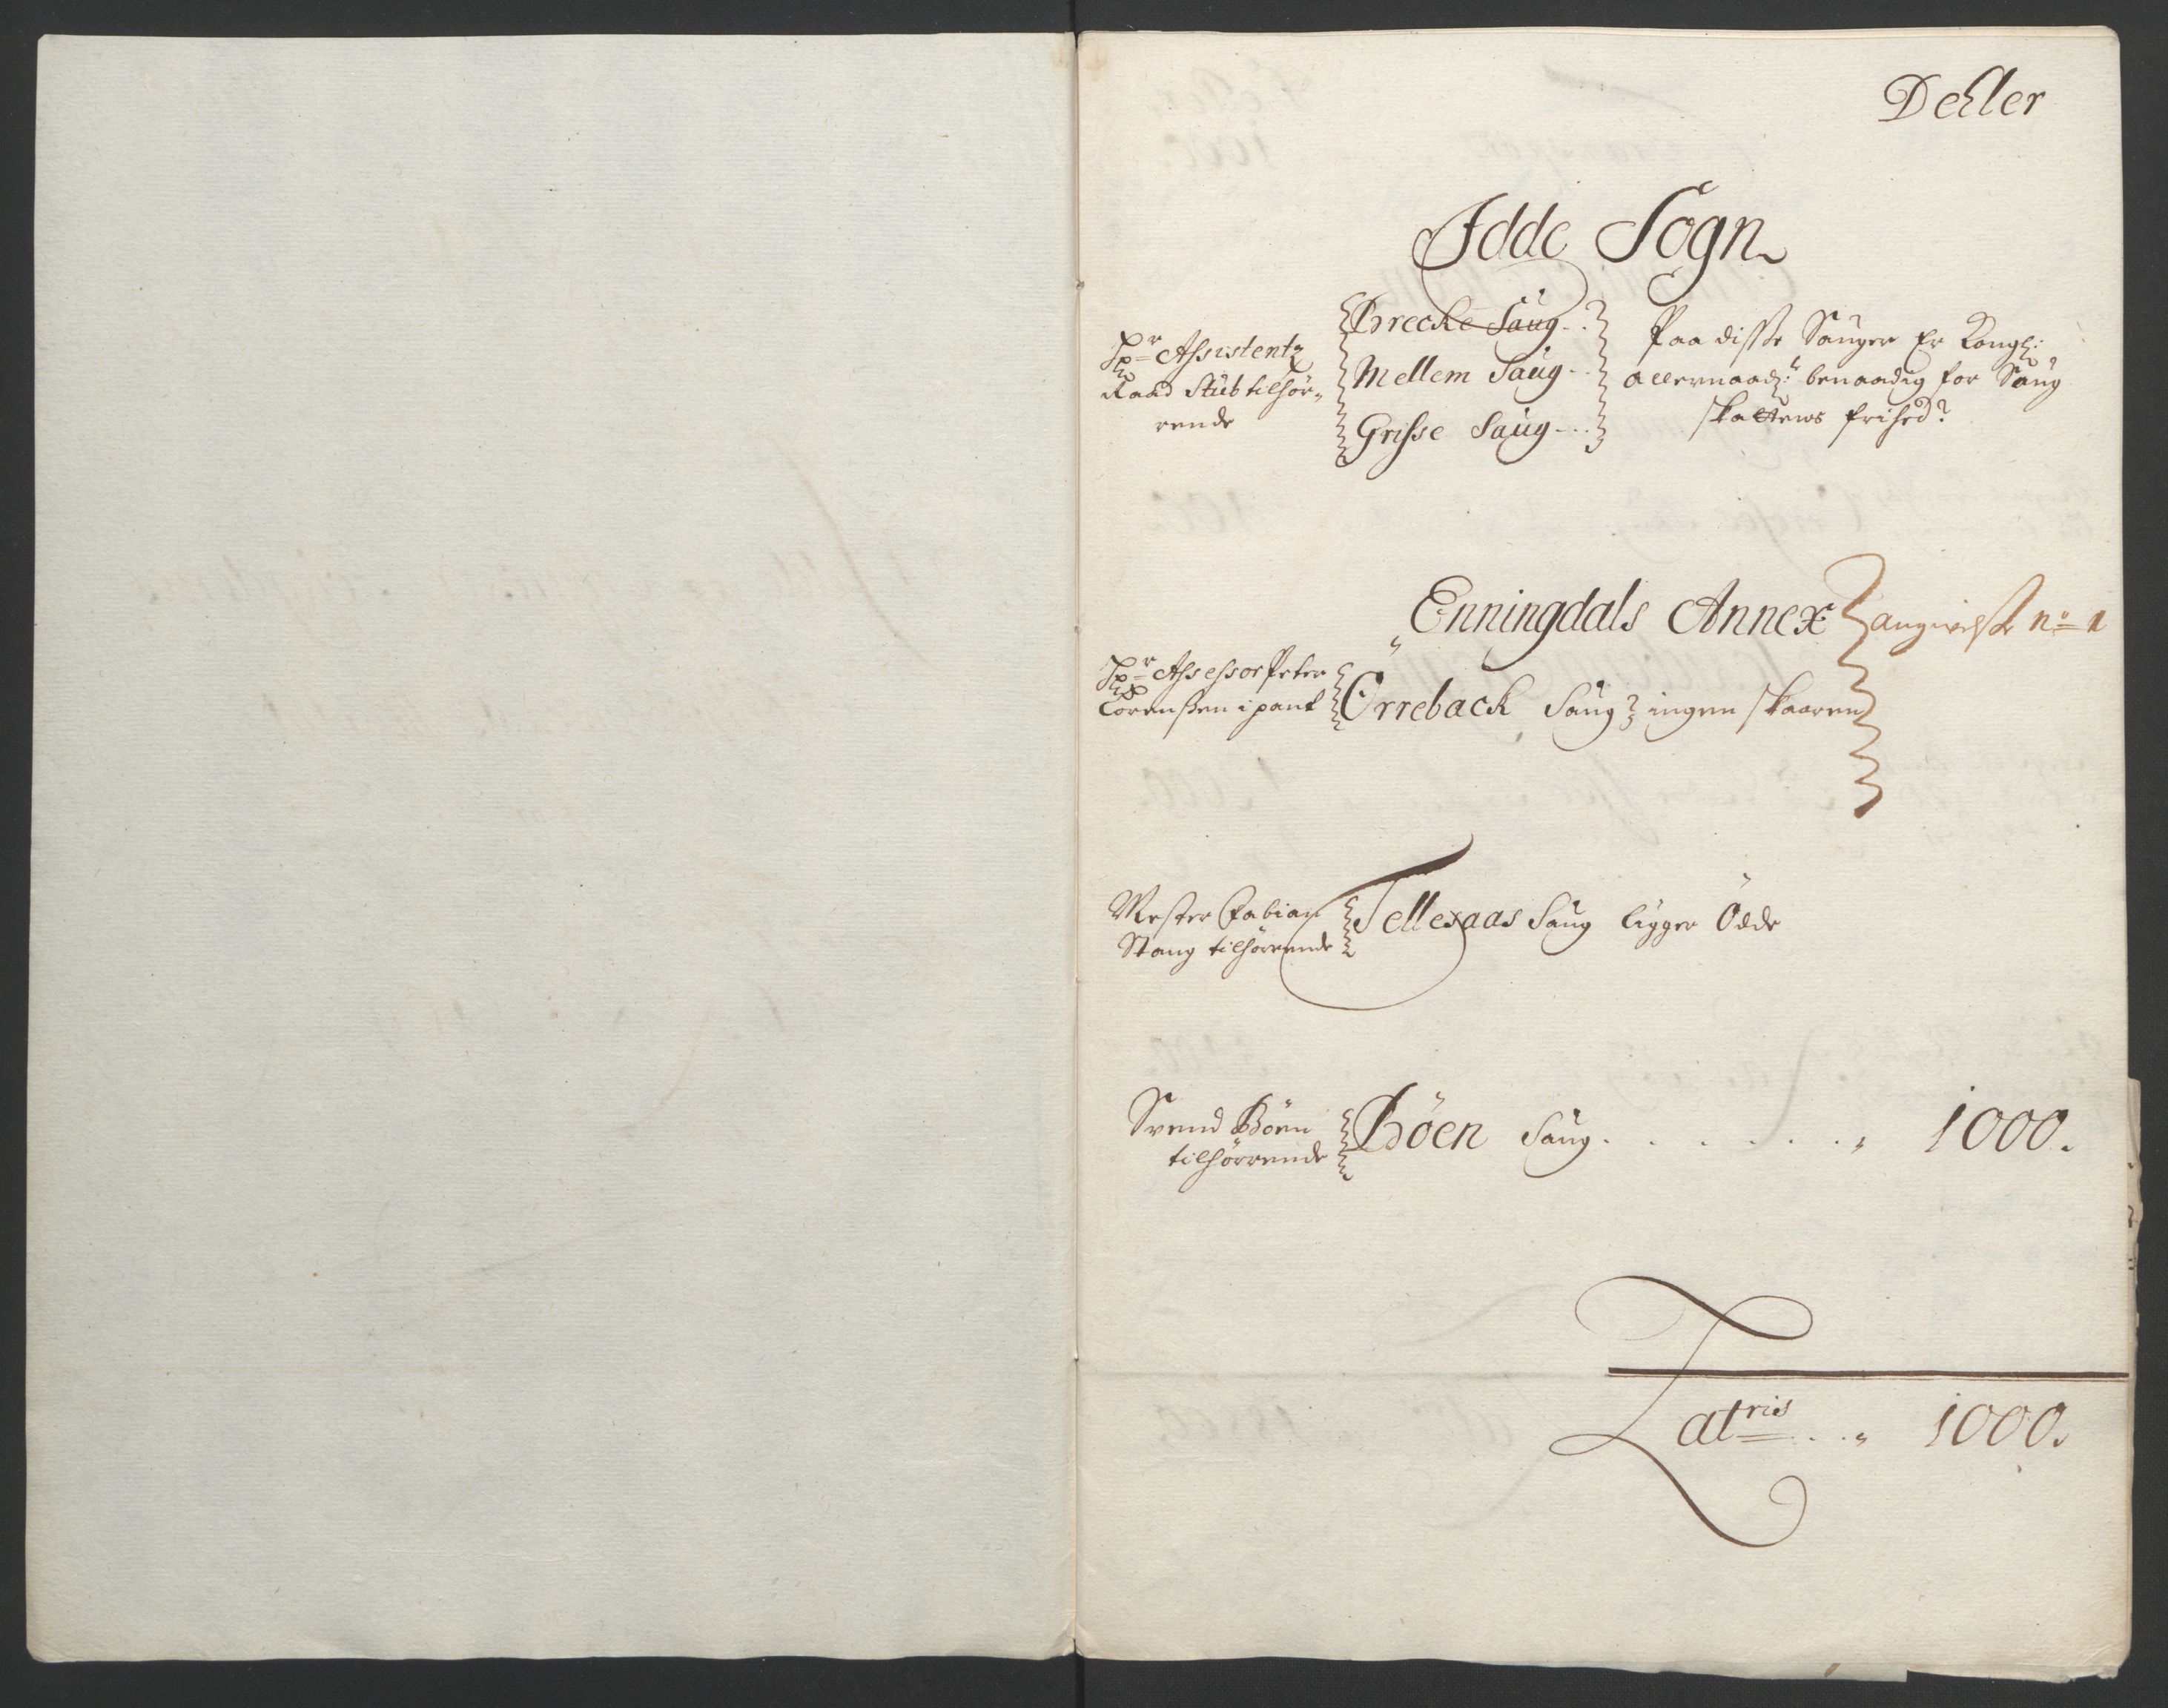 Deller
Idde Sogn
Hr Assistentz
Raad Stub tilhør-
rende
Brecke Saug
Mellem Saug
Grisse Saug
Paa disse Sauger Er Kongl:
allernaadst benaadig for Saug
skattens frihed
Enningdals Annex
angivelse no 1
Hr Assessor Peter
Lorenssen i pant
Örreback Saug ingen skaaren
Mester Fabian
Stang tilhørende
Tellexaas Saug ligger Öde
Svend Böen
tilhörrende
Böen Saug . . . . . . . 1000.
Latris . . 1000.